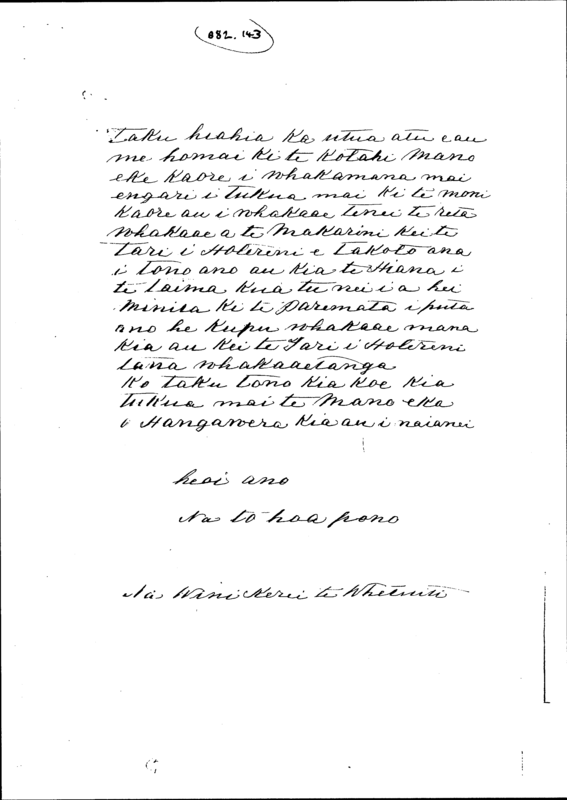 882.143
Taku hiahia ka utua atu e au
me homai ki te Kotahi Mano
eke Kaore i whakamana mai
engari i tukua mai ki te moni
Kaore au i whakaae tenei te reta
whakaae a te Makarini kei te
Tari i Holerini e takoto ana
i tono ano au kia te Hiana i
te taima kua tu nei ia hei
Minita ki te Paremata i puta
ano he kupu whakaae mana
kia au kei te Tari i Holerini
tana whakaaetanga
Ko taku tono kia koe kia
tukua mai te Mano eka
o Hangawera kia au i naianei
heoi ano
Na to hoa pono
Na Wini Kerei te Whetuiti